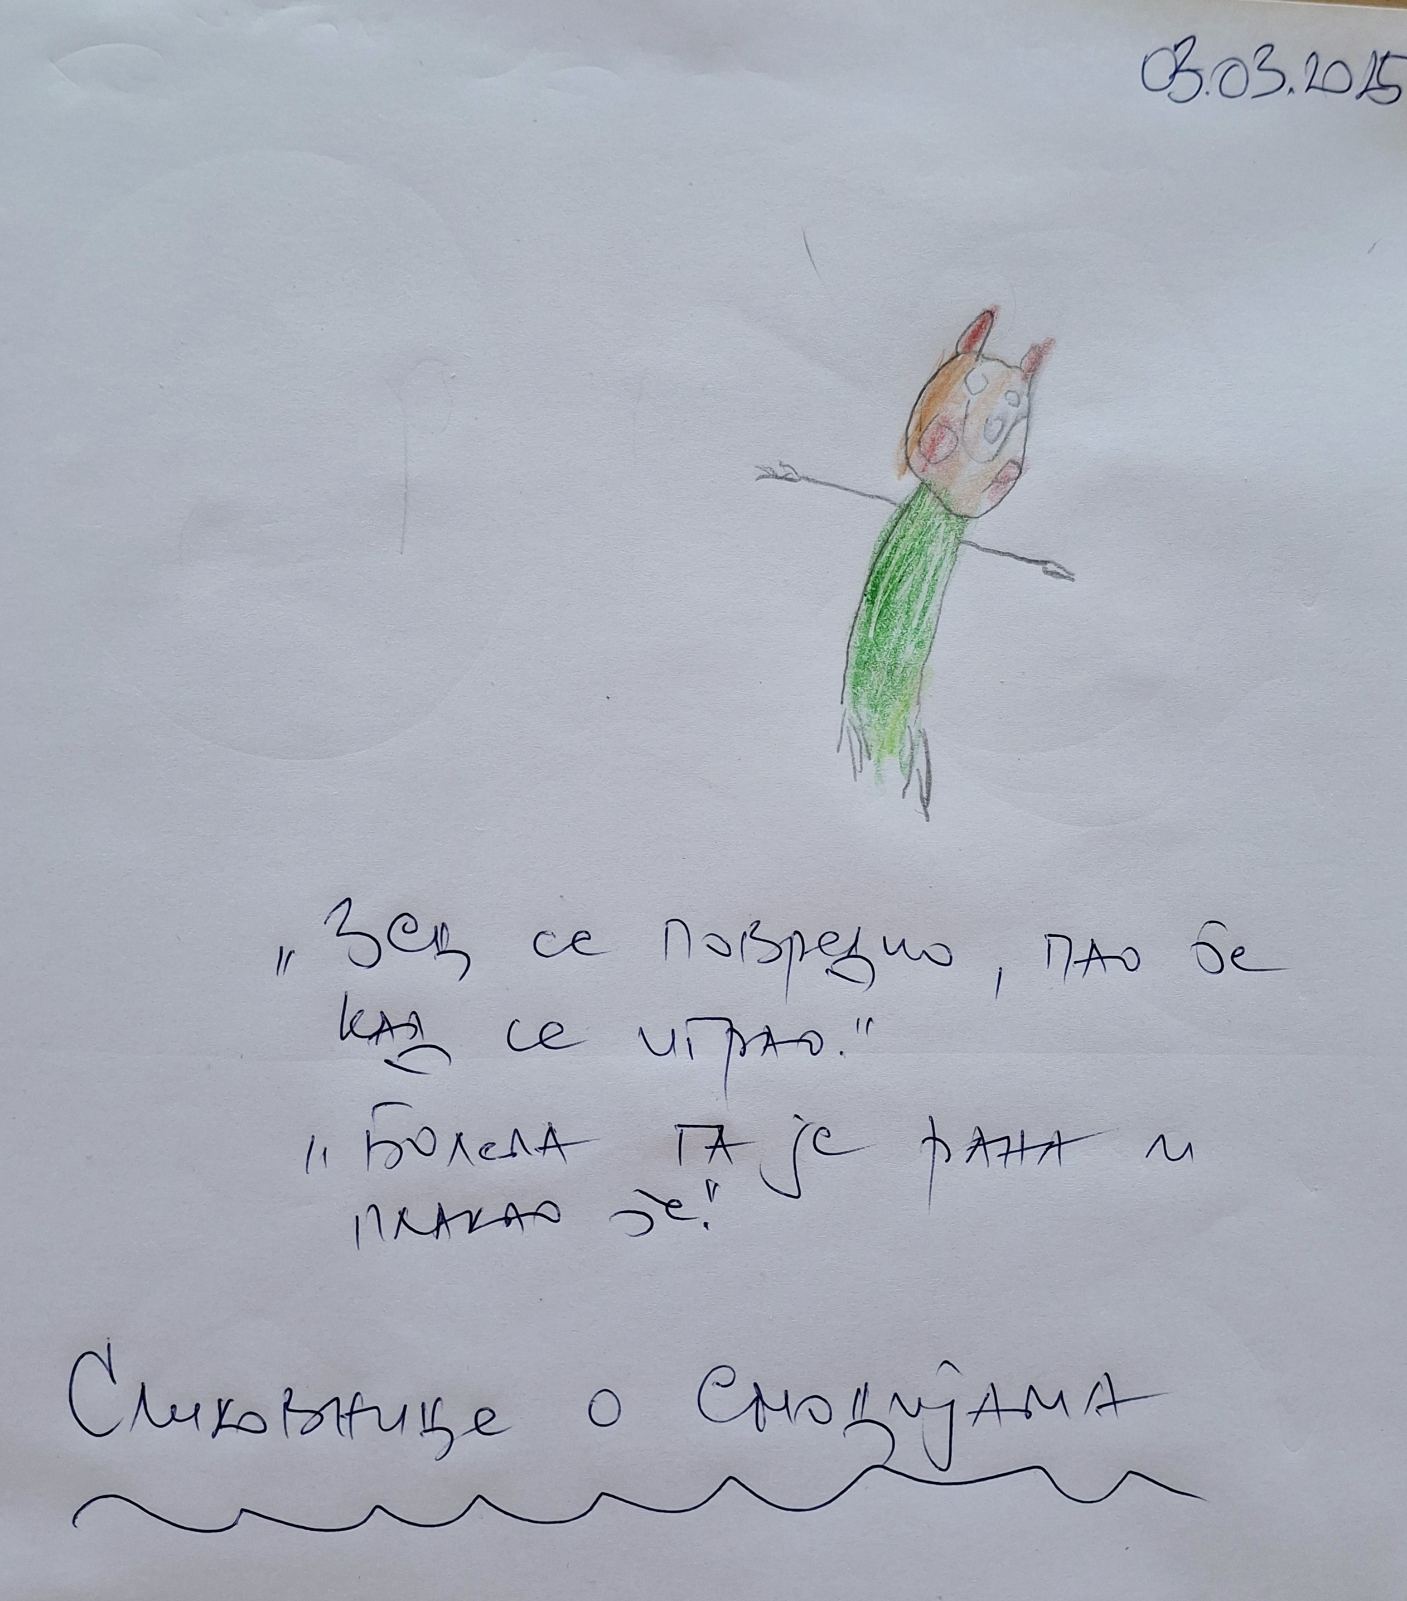 03.03.2025
„Зец се повредио, пао је
кад се играо."
„Болела га је рана и
плакао је."
Сликовнице о емоцијама